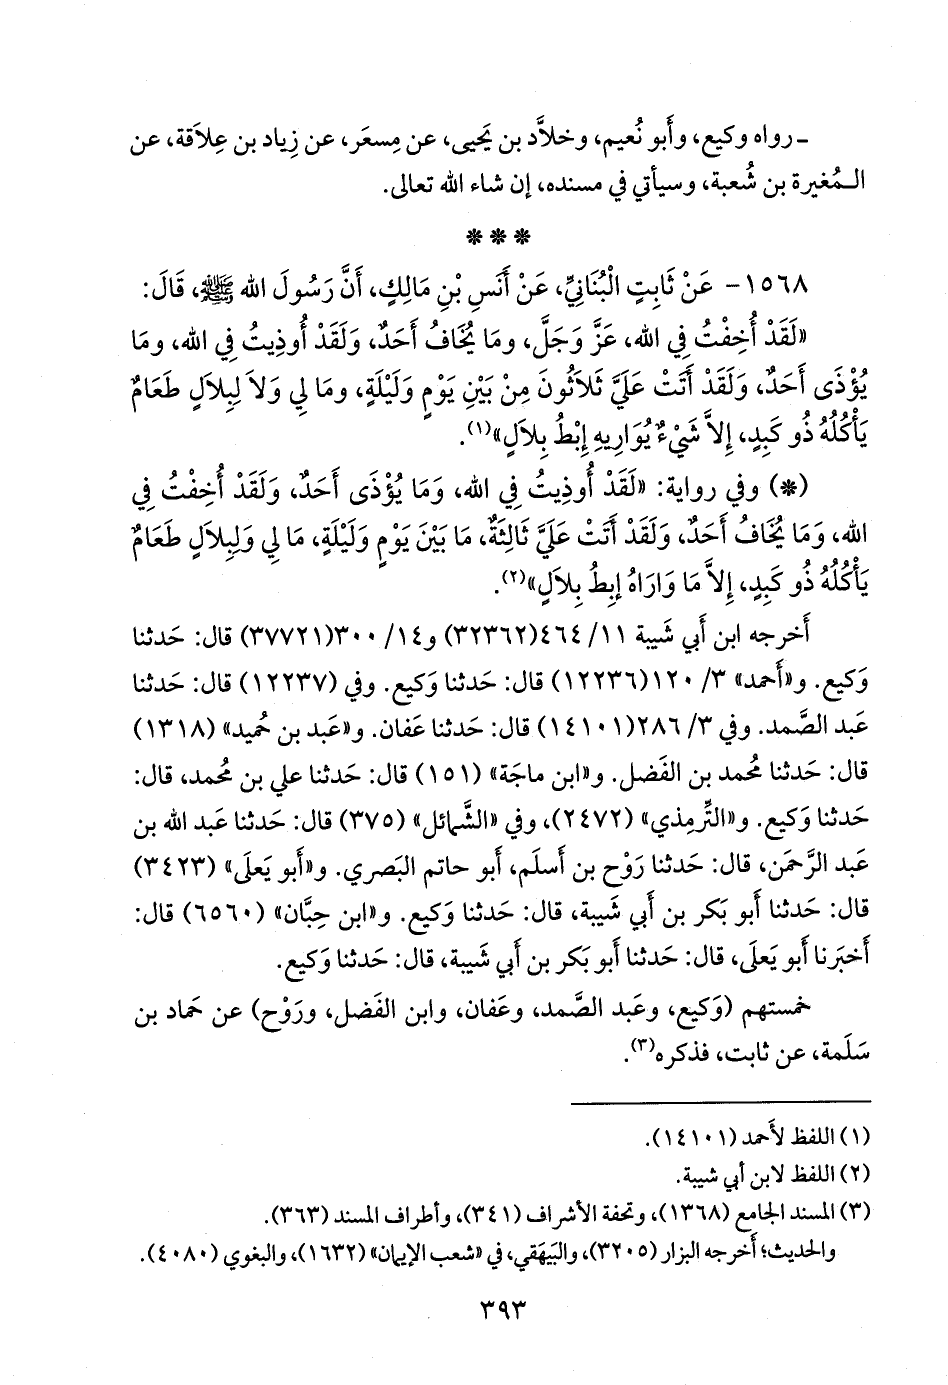 ـ رواه وكيع، وأَبو نُعيم، وخلاَّد بن يَحيى، عن مِسعَر، عن زِياد بن عِلاَقة، عن
الـمُغيرة بن شُعبة، وسيأتي في مسنده، إن شاء الله تعالى.
* * *
١٥٦٨- عَنْ ثَابِتٍ الْبُنَانِيِّ، عَنْ أَنَسِ بْنِ مَالِكٍ، أَنَّ رَسُولَ الله ﷺ، قَالَ:
«لَقَدْ أُخِفْتُ فِي الله، عَزَّ وَجَلَّ، ومَا يُخَافُ أَحَدٌ، وَلَقَدْ أُوذِيتُ فِي الله، ومَا
يُؤْذَى أَحَدٌ، وَلَقَدْ أَتَتْ عَلَيَّ ثَلاَثُونَ مِنْ بَيْنِ يَوْمٍ وَلَيْلَةٍ، ومَا لِي وَلاَ لِبِلاَلٍ طَعَامٌ
يَأْكُلُهُ ذُو كَبِدٍ، إِلاَّ شَيْءٌ يُوَارِيهِ إِبْطُ بِلاَلٍ»(١).
(*) وفي رواية: «لَقَدْ أُوذِيتُ فِي الله، وَمَا يُؤْذَى أَحَدٌ، وَلَقَدْ أُخِفْتُ فِي
الله، وَمَا يُخَافُ أَحَدٌ، وَلَقَدْ أَتَتْ عَلَيَّ ثَالِثَةٌ، مَا بَيْنَ يَوْمٍ وَلَيْلَةٍ، مَا لِي وَلِبِلاَلٍ طَعَامٌ
يَأْكُلُهُ ذُو كَبِدٍ، إِلاَّ مَا وَارَاهُ إِبِطُ بِلاَلٍ»(٢).
أَخرجه ابن أَبي شَيبة ١١/ ٤٦٤(٣٢٣٦٢) و١٤/ ٣٠٠(٣٧٧٢١) قال: حَدثنا
وَكيع. و«أَحمد» ٣/ ١٢٠(١٢٢٣٦) قال: حَدثنا وَكيع. وفي (١٢٢٣٧) قال: حَدثنا
عَبد الصَّمد. وفي ٣/ ٢٨٦(١٤١٠١) قال: حَدثنا عَفان. و«عَبد بن حُميد» (١٣١٨)
قال: حَدثنا مُحمد بن الفَضل. و«ابن ماجَة» (١٥١) قال: حَدثنا علي بن مُحمد، قال:
حَدثنا وَكيع. و«التِّرمِذي» (٢٤٧٢)، وفي «الشَّمائل» (٣٧٥) قال: حَدثنا عَبد الله بن
عَبد الرَّحمَن، قال: حَدثنا رَوْح بن أَسلَم، أَبو حاتم البَصري. و«أَبو يَعلَى» (٣٤٢٣)
قال: حَدثنا أَبو بَكر بن أَبي شَيبة، قال: حَدثنا وَكيع. و«ابن حِبَّان» (٦٥٦٠) قال:
أَخبَرنا أَبو يَعلَى، قال: حَدثنا أَبو بَكر بن أَبي شَيبة، قال: حَدثنا وَكيع.
خمستهم (وَكيع، وعَبد الصَّمد، وعَفان، وابن الفَضل، ورَوْح) عن حَماد بن
سَلَمة، عن ثابت، فذكره(٣).
(١) اللفظ لأَحمد (١٤١٠١).
(٢) اللفظ لابن أَبي شيبة.
(٣) المسند الجامع (١٣٦٨)، وتحفة الأشراف (٣٤١)، وأطراف المسند (٣٦٣).
والحديث؛ أَخرجه البزار (٣٢٠٥)، والبَيهَقي، في «شعب الإيمان» (١٦٣٢)، والبغوي (٤٠٨٠).
٣٩٣